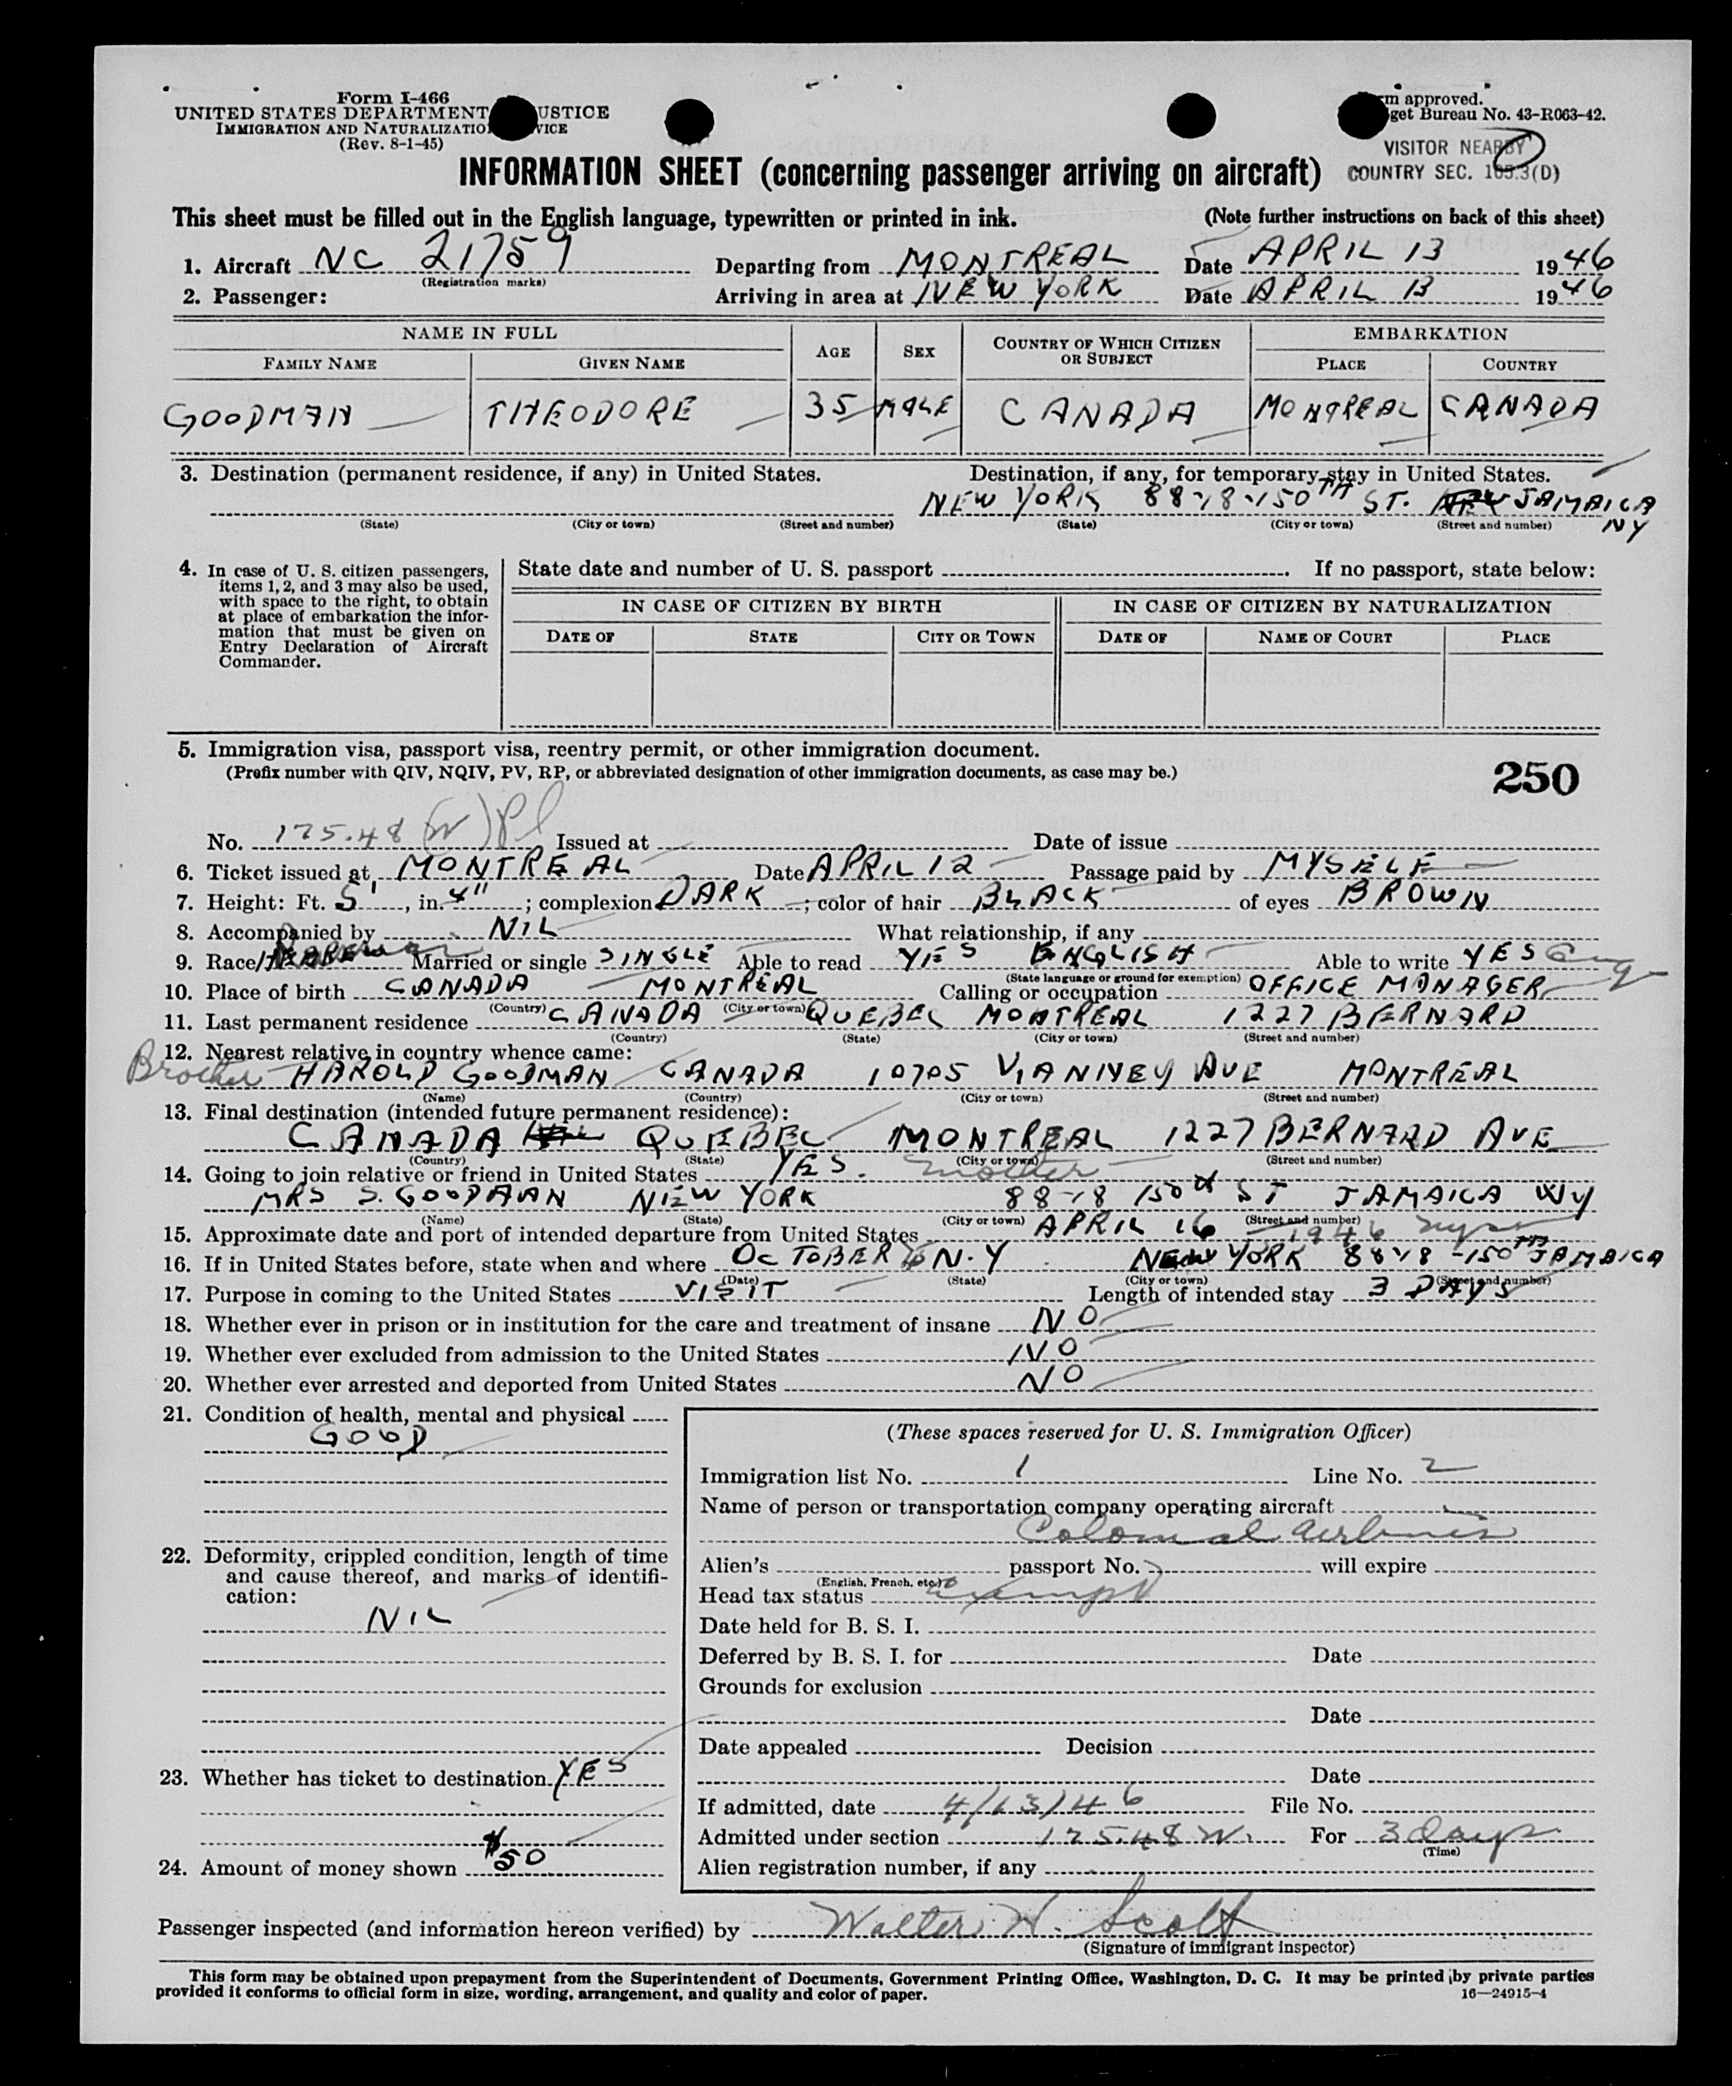 Form I-466
UNITED STATES DEPARTMENT USTICE
IMMIGRATION AND NATURALIZATIO VICE
(Rev. 8-1-45)
m approved.
get Bureau No. 43-R063-42.
VISITOR NEARBY
COUNTRY SEC. (D)
INFORMATION SHEET (concerning passenger arriving on aircraft)
This sheet must be filled out in the English language, typewritten or printed in ink. (Note further instructions on back of this sheet)
1. Aircraft NC 21759 Departing from MONTREAL Date APRIL 13 1946
(Registration marks)
2. Passenger: Arriving in area at NEW YORK Date APRIL 13 1946
NAME IN FULL AGE SEX COUNTRY OF WHICH CITIZEN OR SUBJECT EMBARKATION
FAMILY NAME GIVEN NAME PLACE COUNTRY
GOODMAN THEODORE 35 MALE CANADA MONTREAL CANADA
3. Destination (permanent residence, if any) in United States. Destination, if any, for temporary stay in United States.
NEW YORK 88-18-150TH ST. JAMAICA NY
(State) (City or town) (Street and number) (State) (City or town) (Street and number)
4. In case of U. S. citizen passengers,
items 1, 2, and 3 may also be used,
with space to the right, to obtain
at place of embarkation the infor-
mation that must be given on
Entry Declaration of Aircraft
Commander.
State date and number of U. S. passport . If no passport, state below:
IN CASE OF CITIZEN BY BIRTH IN CASE OF CITIZEN BY NATURALIZATION
DATE OF STATE CITY OR TOWN DATE OF NAME OF COURT PLACE
5. Immigration visa, passport visa, reentry permit, or other immigration document.
(Prefix number with QIV, NQIV, PV, RP, or abbreviated designation of other immigration documents, as case may be.)
250
No. 175.48 (W) Pl Issued at Date of issue
6. Ticket issued at MONTREAL Date APRIL 12 Passage paid by MYSELF
7. Height: Ft. 5', in. 4"; complexion DARK; color of hair BLACK of eyes BROWN
8. Accompanied by NIL What relationship, if any
9. Race Married or single SINGLE Able to read YES ENGLISH Able to write YES Eng
(State language or ground for exemption)
10. Place of birth CANADA MONTREAL Calling or occupation OFFICE MANAGER
(Country) (City or town)
11. Last permanent residence CANADA QUEBEC MONTREAL 1227 BERNARD
(Country) (State) (City or town) (Street and number)
12. Nearest relative in country whence came:
Brother HAROLD GOODMAN CANADA 10705 VIANNEY AVE MONTREAL
(Name) (Country) (City or town) (Street and number)
13. Final destination (intended future permanent residence):
CANADA QUEBEC MONTREAL 1227 BERNARD AVE
(Country) (State) (City or town) (Street and number)
14. Going to join relative or friend in United States YES. mother
MRS S. GOODMAN NEW YORK 88-18 150th ST JAMAICA NY
(Name) (State) (City or town) (Street and number)
15. Approximate date and port of intended departure from United States APRIL 16 1946
16. If in United States before, state when and where OCTOBER N.Y NEW YORK 88-18-150TH JAMAICA
(Date) (State) (City or town) (Street and number)
17. Purpose in coming to the United States VISIT Length of intended stay 3 DAYS
18. Whether ever in prison or in institution for the care and treatment of insane NO
19. Whether ever excluded from admission to the United States NO
20. Whether ever arrested and deported from United States NO
21. Condition of health, mental and physical
GOOD
22. Deformity, crippled condition, length of time
and cause thereof, and marks of identifi-
cation:
NIL
23. Whether has ticket to destination YES
24. Amount of money shown $50
(These spaces reserved for U. S. Immigration Officer)
Immigration list No. 1 Line No. 2
Name of person or transportation company operating aircraft
Colonial Airlines
Alien's passport No. will expire
(English, French, etc.)
Head tax status exempt
Date held for B. S. I.
Deferred by B. S. I. for Date
Grounds for exclusion
Date
Date appealed Decision
Date
If admitted, date 4/13/46 File No.
Admitted under section 175.48 W. For 3 days
(Time)
Alien registration number, if any
Passenger inspected (and information hereon verified) by Walter H. Scott
(Signature of immigrant inspector)
This form may be obtained upon prepayment from the Superintendent of Documents, Government Printing Office, Washington, D. C. It may be printed by private parties
provided it conforms to official form in size, wording, arrangement, and quality and color of paper. 16—24915-4